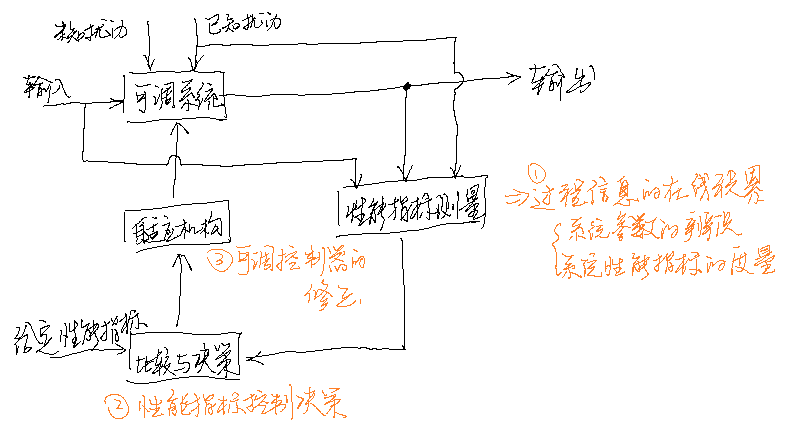 未知扰动
已知扰动
输入
可调系统
输出
性能指标测量
① 过程信息的在线积累
系统参数的辨识
系统性能指标的度量
自适应机构
③ 可调控制器的
修正
给定性能指标
比较与决策
② 性能指标控制决策